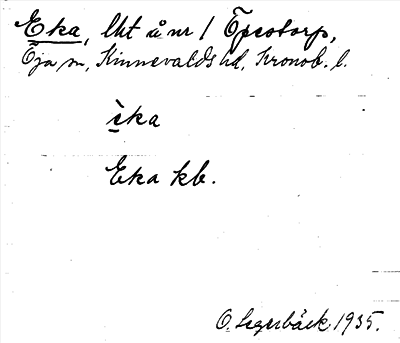 Eka, lht å nr 1 Öpestorp,
Öja sn, Kinnevalds hd, Kronob. l.
èka
Eka kb.
O. Legerbäck 1935.